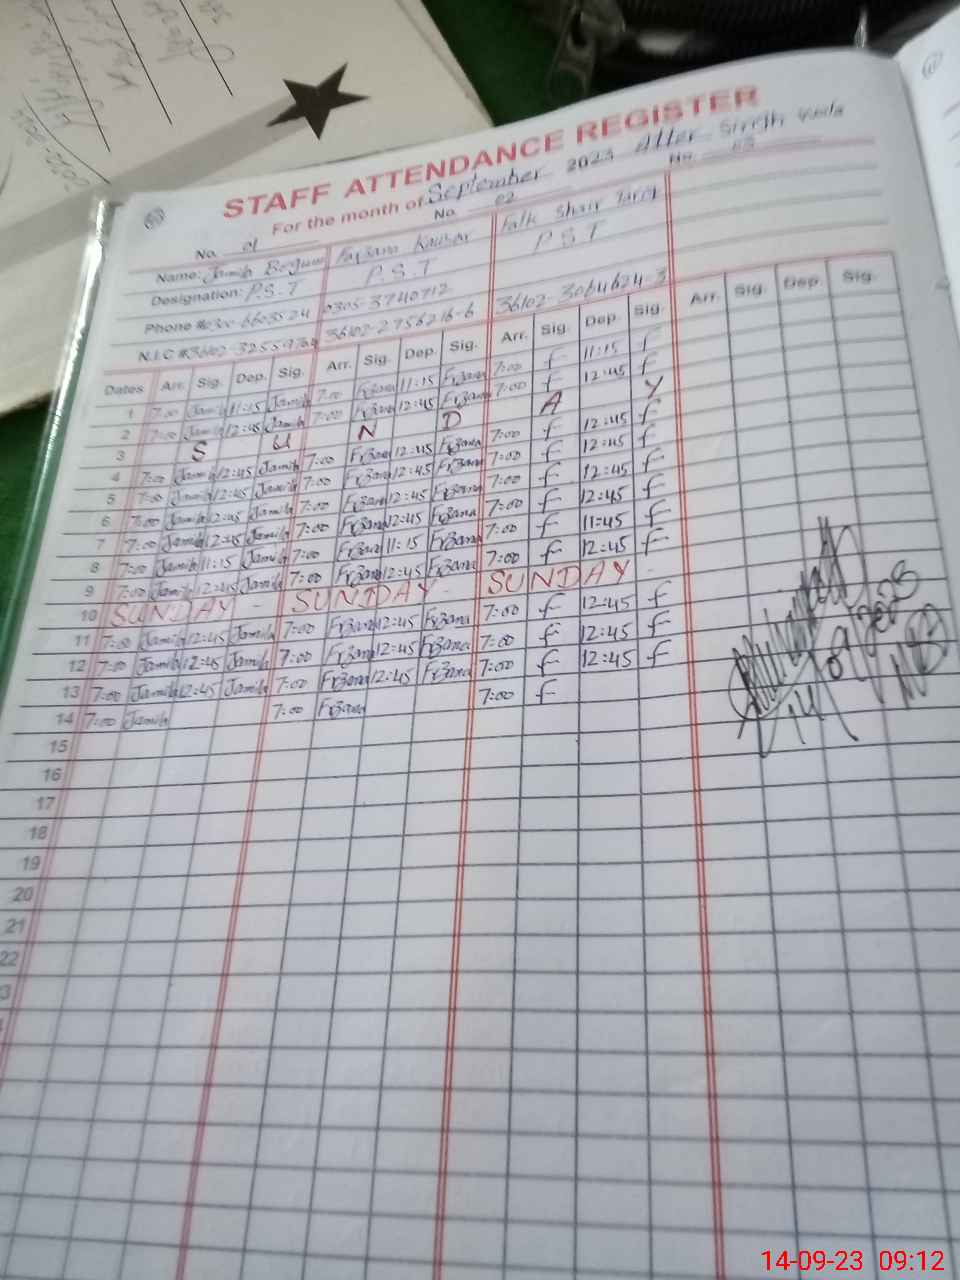 STAFF ATTENDANCE REGISTER
For the month of September 2023
No. 01 No. 02 No. 03
Name: Jamila Begum Farzana Kausar Falk Shair
Designation: P.S.T P.S.T P.S.T
Phone # 0300-6603524 0305-3740712
N.I.C # 36102-2756216-6 36102-3064624-3
Dates Arr. Sig. Dep. Sig. Arr. Sig. Dep. Sig. Arr. Sig. Dep. Sig. Arr. Sig. Dep. Sig.
1 7:00 Jamila 11:15 Jamila 7:00 Frzana 11:15 Frzana 7:00 f 11:15 f
2 7:00 Jamila 12:45 Jamila 7:00 Frzana 12:45 Frzana 7:00 f 12:45 f
3 S U N D A Y
4 7:00 Jamila 12:45 Jamila 7:00 Frzana 12:45 Frzana 7:00 f 12:45 f
5 7:00 Jamila 12:45 Jamila 7:00 Frzana 12:45 Frzana 7:00 f 12:45 f
6 7:00 Jamila 12:45 Jamila 7:00 Frzana 12:45 Frzana 7:00 f 12:45 f
7 7:00 Jamila 12:45 Jamila 7:00 Frzana 12:45 Frzana 7:00 f 12:45 f
8 7:00 Jamila 11:15 Jamila 7:00 Frzana 11:15 Frzana 7:00 f 11:45 f
9 7:00 Jamila 12:45 Jamila 7:00 Frzana 12:45 Frzana 7:00 f 12:45 f
10 SUNDAY - SUNDAY - SUNDAY -
11 7:00 Jamila 12:45 Jamila 7:00 Frzana 12:45 Frzana 7:00 f 12:45 f
12 7:00 Jamila 12:45 Jamila 7:00 Frzana 12:45 Frzana 7:00 f 12:45 f
13 7:00 Jamila 12:45 Jamila 7:00 Frzana 12:45 Frzana 7:00 f 12:45 f
14 7:00 Jamila 7:00 Frzana 7:00 f
15
16
17
18
19
20
21
22
14-09-23 09:12